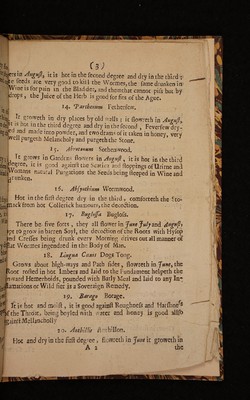 ( 3 )
ers in August, it is hot in the second degree and dry in the third :
seeds are very good to kill the Wormes, the same drunken in
Wine is for pain in the Bladder, and them that cannot piss but by
drops, the Juice of the Herb is good for fits of the Ague.
14. Parthenium Fetherfew.
It groweth in dry places by old walls : it flowreth in August,
it is hot in the third degree and dry in the second, Feverfew dry-
ed and made into powder, and two drams of it taken in honey, very
well purgeth Melancholy and purgeth the Stone.
15. Abrotanum Sothernwood.
It grows in Gardens flowers in August, it is hot in the third
degree, it is good against the and stoppings of Urine and
Womens natural Purgations the Seeds being steeped in Wine and
drunken.
16. Absynthium Wormwood.
Hot in the first degree dry in the third, comforteth the Sto-
mack from hot Collerick humours, the decoction.
17. Buglossa Bugloss.
There be five sorts, they all flower in June July and August,
to grow in barren Soyl, the decoction of the Roots with Hysop
and Cresses being drunk every Morning drives out all manner of
flat Wormes ingendred in the Body of Man.
18. Lingua Canis Dogs Tong.
Grows about high-ways and Path sides, flowreth in June, the
Root rosted in hot Imbers and laid to the Fundament helpeth the
inward Hemerhoids, pounded with Barly Meal and laid to any In-
flamations or Wild fire is a Soveraign Remedy.
19. Borago Borage.
It is hot and moist, it is good against Roughness and Harshness
of the Throat, being boyled with water and honey is good also
against Mellancholly
20. Anthillis
Hot and dry in the first degree, flowreth in June it groweth in
A 2 the